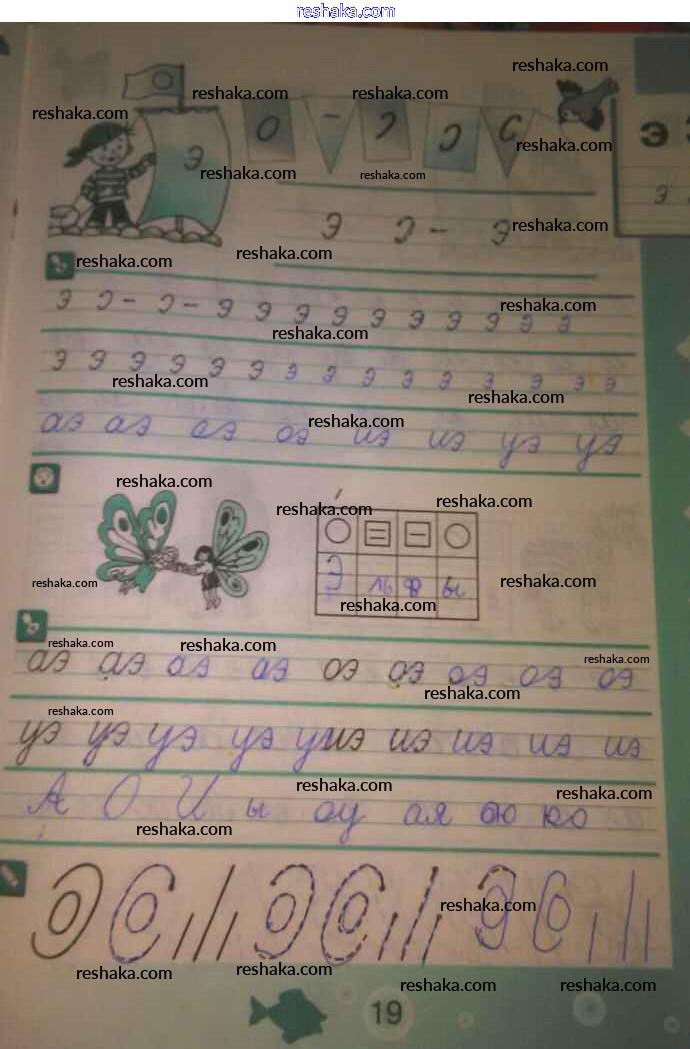 reshaka.com
reshaka.com
reshaka.com reshaka.com
reshaka.com
Э О - Э Э С
reshaka.com
reshaka.com reshaka.com
э э
э э - э
reshaka.com
reshaka.com
reshaka.com
э э - э - э э э э э э э э э э
reshaka.com
reshaka.com
э э э э э э э э э э э э э э
reshaka.com
reshaka.com
аэ аэ аэ оэ иэ иэ уэ уэ
reshaka.com
reshaka.com
reshaka.com
reshaka.com
Э ль ф ы
reshaka.com
reshaka.com
reshaka.com
reshaka.com
reshaka.com
reshaka.com
аэ аэ аэ аэ оэ оэ оэ оэ оэ
reshaka.com
reshaka.com
уэ уэ уэ уэ уиэ иэ иэ иэ иэ
reshaka.com
reshaka.com
А О И ы оу ая ою ю
reshaka.com
reshaka.com
reshaka.com
reshaka.com
reshaka.com
reshaka.com
19